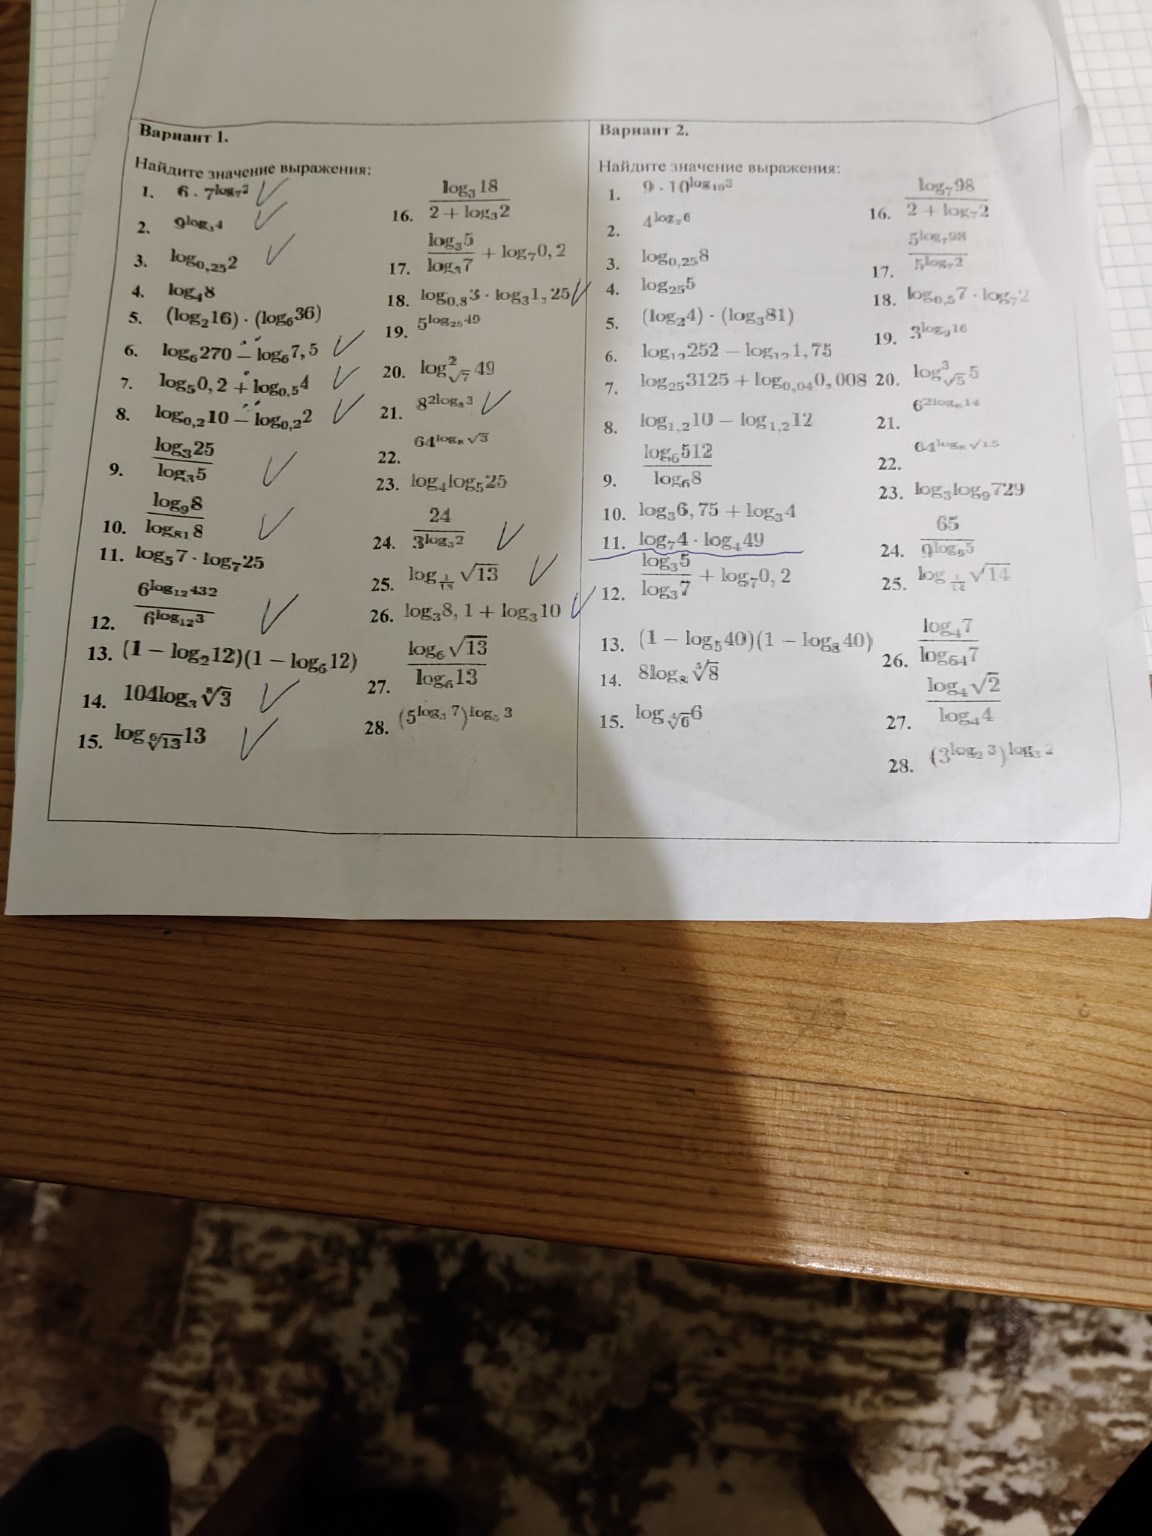 Вариант 1.
Найдите значение выражения:
1. 6 · 7^{log_7 2}
2. 9^{log_3 4}
3. log_{0,25} 2
4. log_4 8
5. (log_2 16) · (log_6 36)
6. log_6 270 − log_6 7,5
7. log_5 0,2 + log_{0,5} 4
8. log_{0,2} 10 − log_{0,2} 2
9. \frac{log_3 25}{log_3 5}
10. \frac{log_9 8}{log_{81} 8}
11. log_5 7 · log_7 25
12. \frac{6^{log_{12} 432}}{6^{log_{12} 3}}
13. (1 − log_2 12)(1 − log_6 12)
14. 104log_3 \sqrt[8]{3}
15. log_{\sqrt[6]{13}} 13
16. \frac{log_3 18}{2 + log_3 2}
17. \frac{log_3 5}{log_3 7} + log_7 0,2
18. log_{0,8} 3 · log_3 1,25
19. 5^{log_{25} 49}
20. log^2_{\sqrt{7}} 49
21. 8^{2log_8 3}
22. 64^{log_8 \sqrt{3}}
23. log_4 log_5 25
24. \frac{24}{3^{log_3 2}}
25. log_{\frac{1}{13}} \sqrt{13}
26. log_3 8,1 + log_3 10
27. \frac{log_6 \sqrt{13}}{log_6 13}
28. (5^{log_3 7})^{log_5 3}
Вариант 2.
Найдите значение выражения:
1. 9 · 10^{log_{10} 3}
2. 4^{log_2 6}
3. log_{0,25} 8
4. log_{25} 5
5. (log_2 4) · (log_3 81)
6. log_{12} 252 − log_{12} 1,75
7. log_{25} 3125 + log_{0,04} 0,008
8. log_{1,2} 10 − log_{1,2} 12
9. \frac{log_6 512}{log_6 8}
10. log_3 6,75 + log_3 4
11. log_7 4 · log_4 49
12. \frac{log_3 5}{log_3 7} + log_7 0,2
13. (1 − log_5 40)(1 − log_8 40)
14. 8log_8 \sqrt[3]{8}
15. log_{\sqrt[4]{6}} 6
16. \frac{log_7 98}{2 + log_7 2}
17. \frac{5^{log_7 98}}{5^{log_7 2}}
18. log_{0,5} 7 · log_7 2
19. 3^{log_9 16}
20. log^3_{\sqrt{5}} 5
21. 6^{2log_6 14}
22. 64^{log_8 \sqrt{15}}
23. log_3 log_9 729
24. \frac{65}{9^{log_9 5}}
25. log_{\frac{1}{14}} \sqrt{14}
26. \frac{log_4 7}{log_{64} 7}
27. \frac{log_4 \sqrt{2}}{log_4 4}
28. (3^{log_2 3})^{log_3 2}